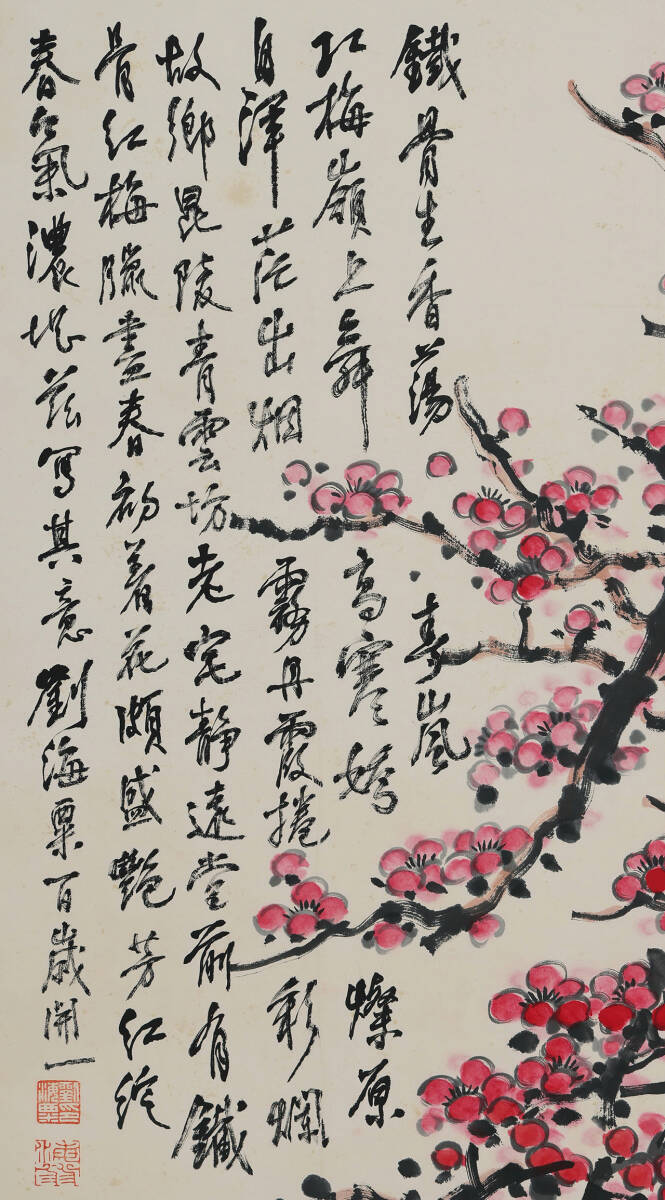 鐵骨生香蕩嵐
紅梅嶺上舞高寒嬌燦原
自澤茫出烟霧丹霞捲彩爛
故鄉昆陵青雲坊老宅靜遠堂前有鐵
骨紅梅臘盡春初着花頗盛艷芳紅綻
春氣濃茲寫其意劉海粟百歲開一